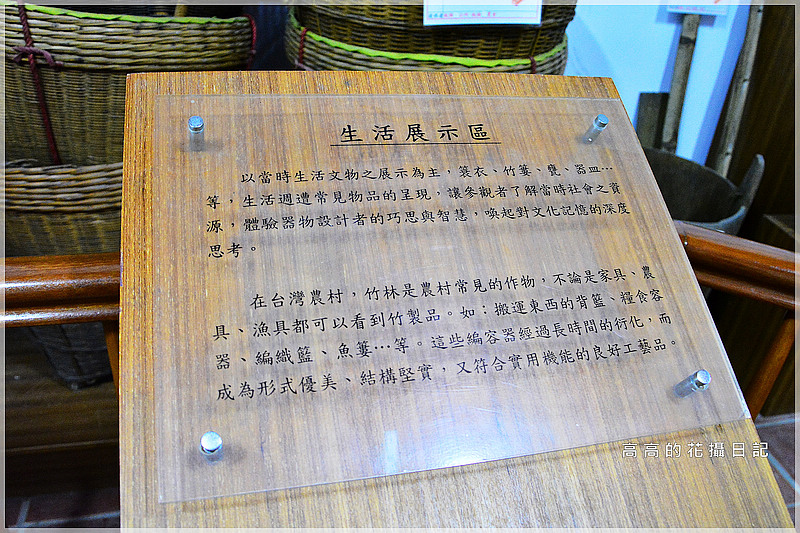 生活展示區
以當時生活文物之展示為主，簑衣、竹簍、甕、器皿…
等，生活週遭常見物品的呈現，讓參觀者了解當時社會之資
源，體驗器物設計者的巧思與智慧，喚起對文化記憶的深度
思考。
在台灣農村，竹林是農村常見的作物，不論是家具、農
具、漁具都可以看到竹製品。如：搬運東西的背籃、糧食容
器、編織籃、魚簍…等。這些編容器經過長時間的衍化，而
成為形式優美、結構堅實，又符合實用機能的良好工藝品。
高高的花攝日記